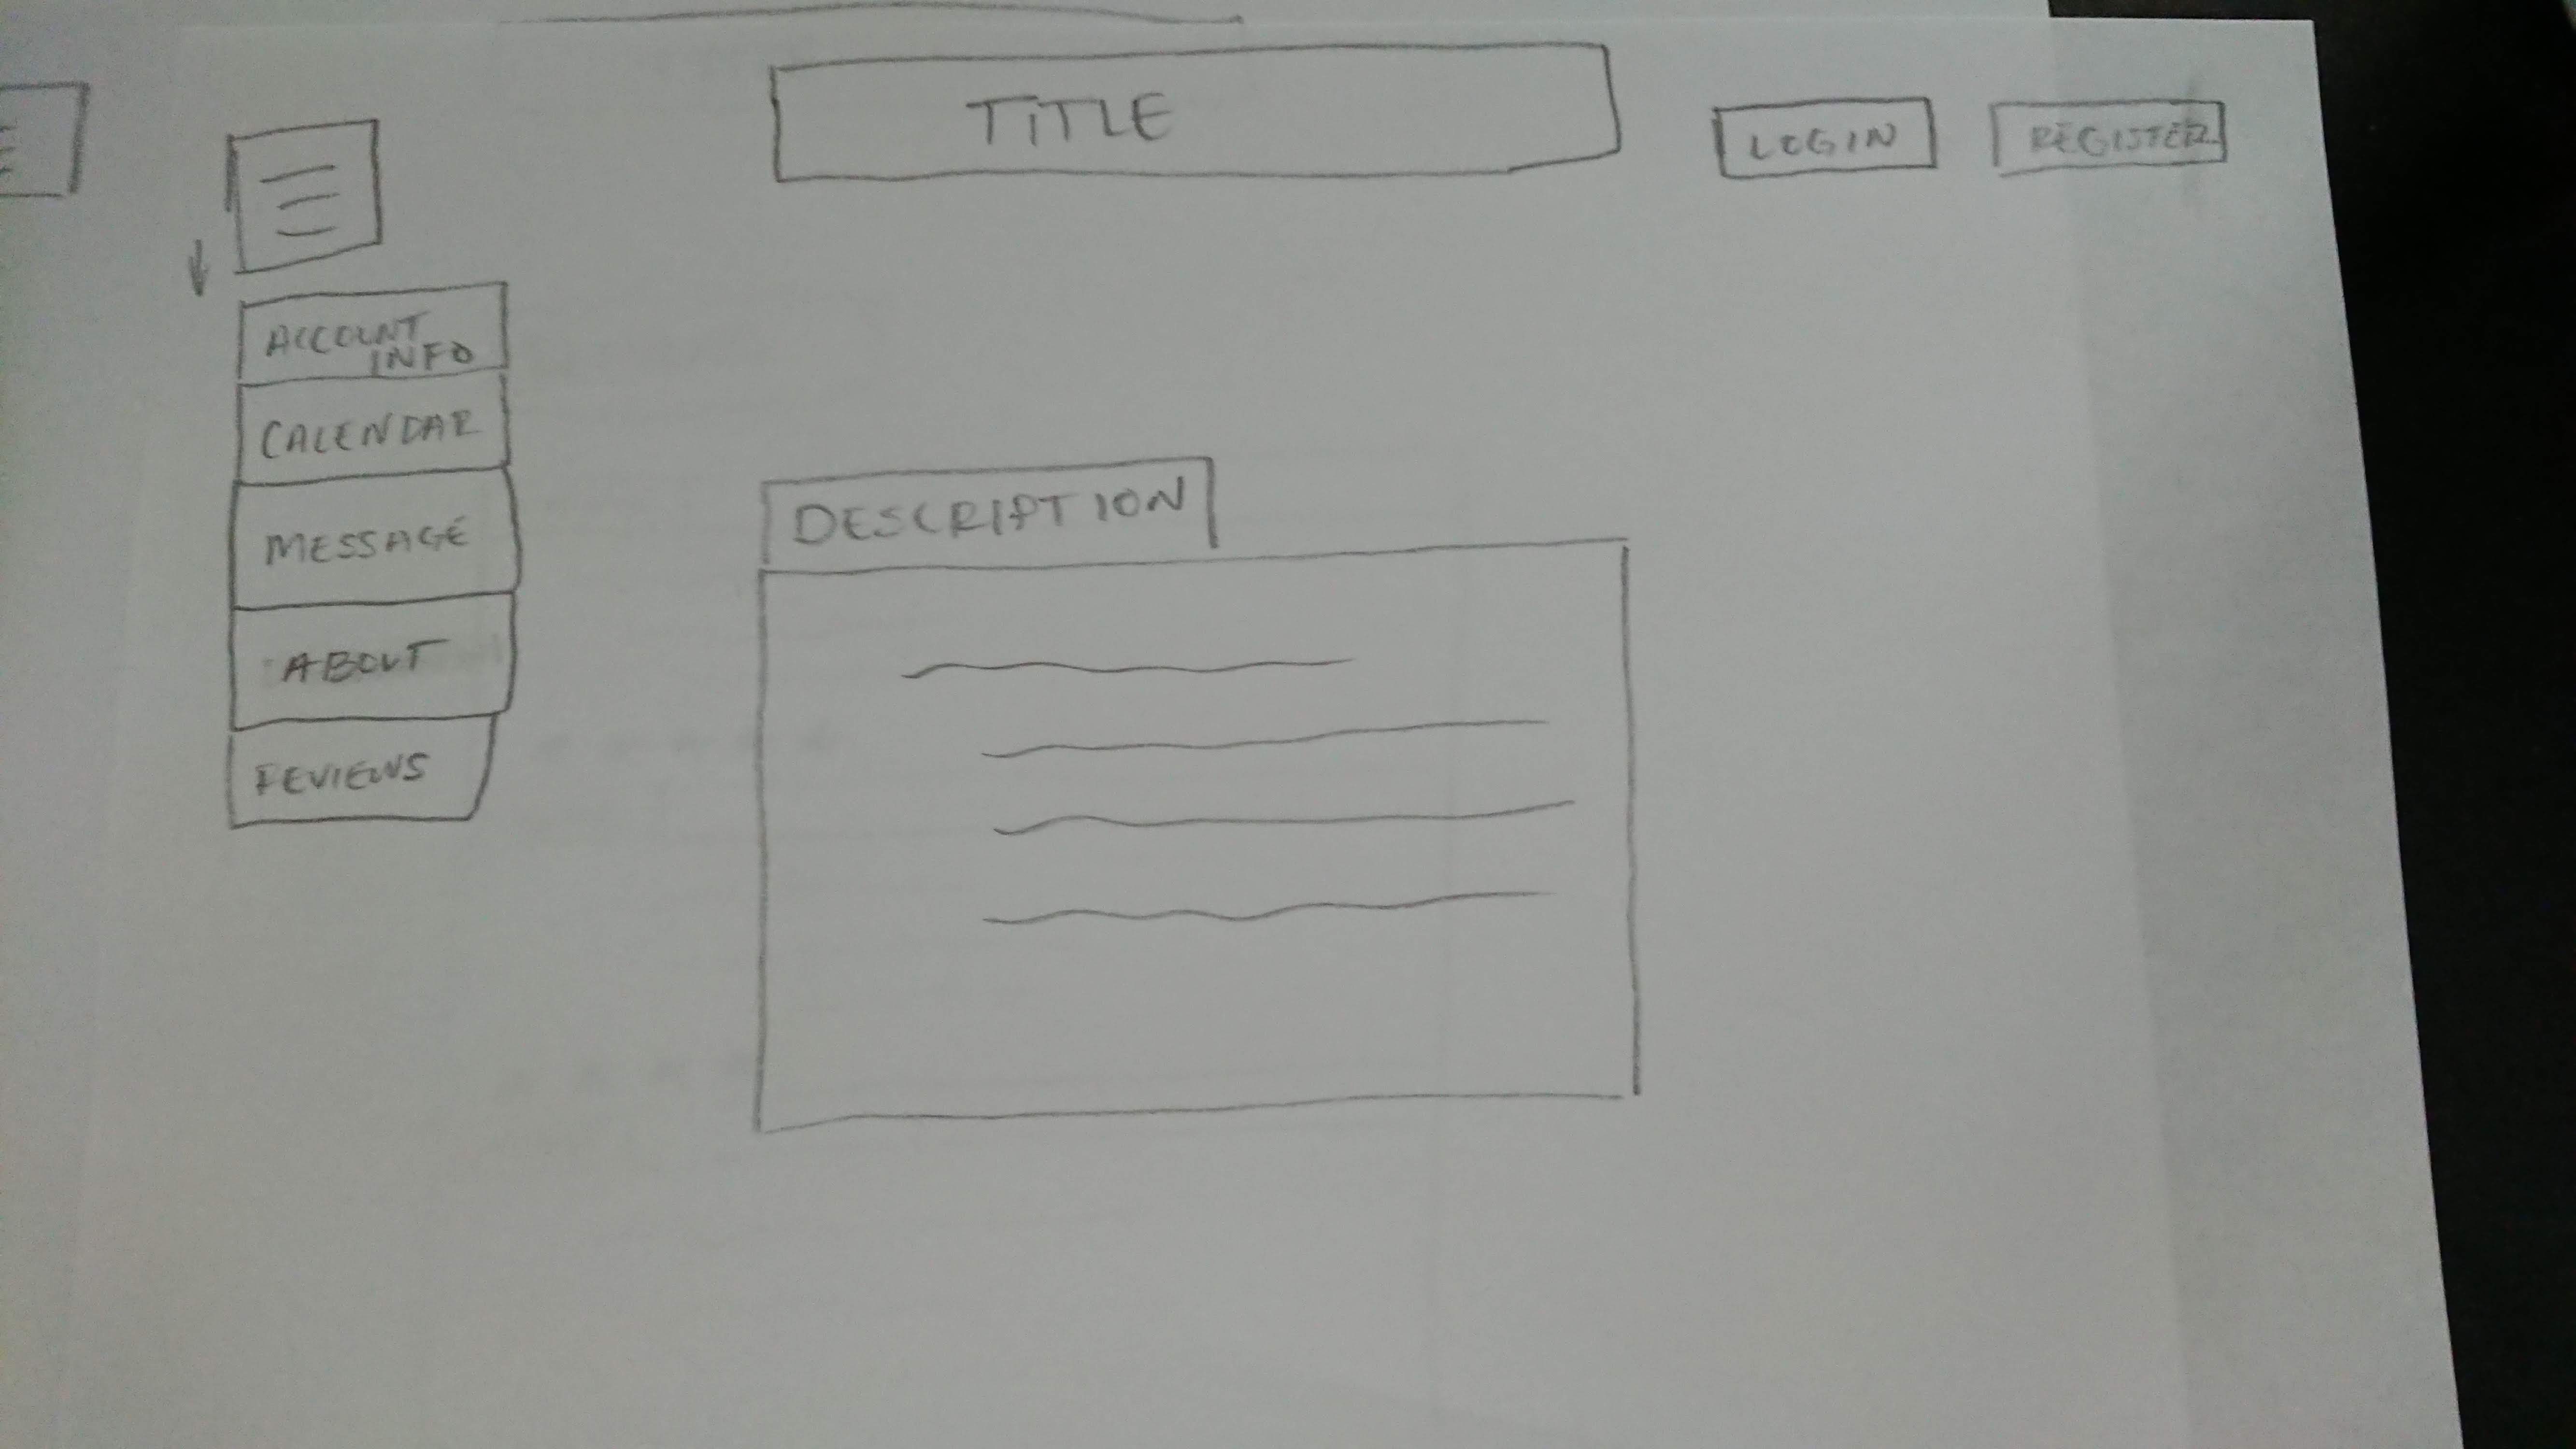 TiTLE
LOGIN
REGISTER
ACCOUNT
INFO
CALENDAR
MESSAGE
ABOUT
REVIEWS
DESCRIPTION